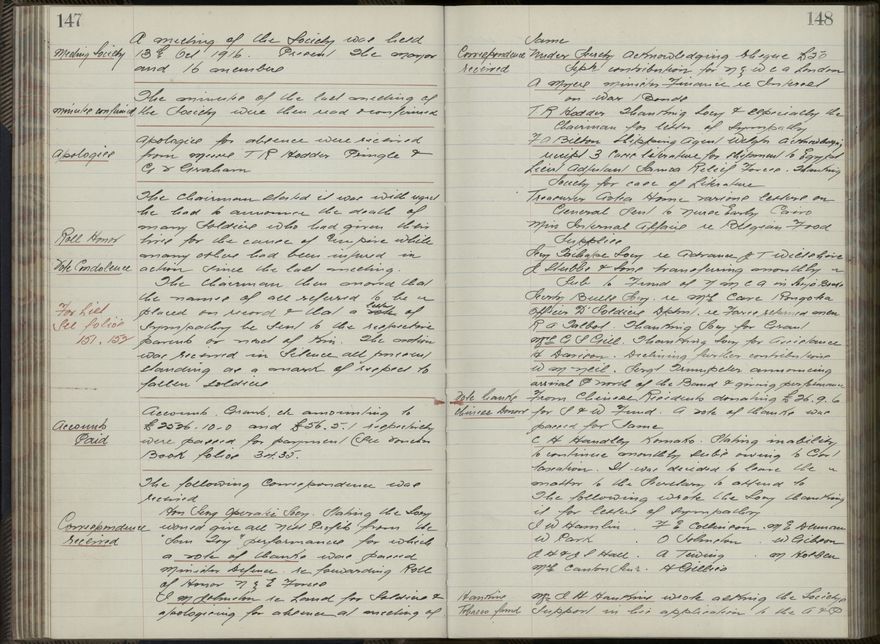 147
A meeting of the Society was held
Meeting Society 13th Oct 1916. Present The mayor
and 16 members
The minutes of the last meeting of
minutes confirmed the Society were then read & confirmed
Apologies for absence were received
Apologies from Messrs T R Hodder Pringle &
Graham
The Chairman stated it was with regret
he had to announce the death of
many Soldiers who had given their
Roll Honor lives for the cause of Empire while
many others had been injured in
Vote Condolence action since the last meeting.
The Chairman then moved that
the names of all referred to be
For List placed on record & that a letter of
See folios Sympathy be sent to the respective
151. 152 parents or next of Kin. The motion
was received in Silence all present
standing as a mark of respect to
fallen soldiers
Accounts. Grants, etc amounting to
Accounts £2536.10.0 and £56.5.1 respectively
Paid were passed for payment (See voucher
Book folios 34.35.
The following Correspondence was
received
Hon Secy Operatic Socy. Stating the Socy
Correspondence would give all nett profits from the
received "Tom Boy" performances for which
a vote of thanks was passed
Minister Defence. re forwarding Roll
of Honor N Z E Forces
J M Johnston re Land for Soldiers &
apologising for absence at meeting of
148
Same
Correspondence acknowledging cheque
received Sept contribution for London
A Myers minister Finance re Interest
on War Bonds
T R Hodder Thanking Socy & especially the
Chairman for letter of Sympathy
F A Bilton Shipping Agent Wellgtn acknowledging
receipt 3 Cases literature for shipment to Egypt
Lieut Adjutant Samoa Relief Force. Thanking
Society for case of Literature
Treasurer Home various letters on
General Sent to Nurse Early Cairo
Min Internal Affairs re Belgian Food
Supplies
Socy re Advance J T Wiltshire
J Stubbs & Sons transferring monthly
Sub to Fund of Y M C A in Boys Bonds
re Mrs Care Rongotea
Officer I/C Soldiers Dptmt. re Farce returned men
R A Talbot. Thanking Socy for Grant
Mrs E S Gill. Thanking Socy for Assistance
H Davison. Declining further contributions
Sergt Trumpeter announcing
arrival P North of the Band & giving performance
Vote thanks From Chinese Residents donating £26.9.6
Chinese Donors for S & W Fund. A vote of thanks was
passed for Same
C H Handley Komako. Stating inability
to continue monthly Subs owing to
taxation. It was decided to leave the
matter to the Secretary to attend to
The following wrote the Socy thanking
it for letters of Sympathy
J W Hamlin. F E Collinson. M E
W Park. O Johnston. W Gibson
Hall. A Tewing. M Holben
Mrs Canton H Gillies
Hankins Mr J H Hankins wrote asking the Society's
Tobacco fund Support in his application to the A & P